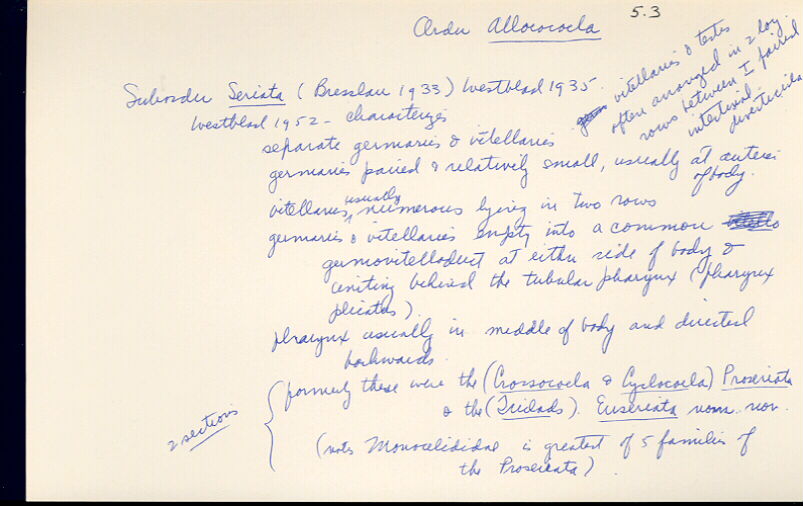 5.3
Order Allococoela
vitellaries & testes
often arranged in 2 long
rows between I paired
intestinal
diverticula
Suborder Seriata (Bresslau 1933) Westblad 1935
Westblad 1952 - characterizes
separate germaries & vitellaries
germaries paired & relatively small, usually at anterior
of body.
vitellaries, usually numerous lying in two rows
germaries & vitellaries empty into a common
germovitelloduct at either side of body &
uniting behind the tubular pharynx (pharynx
plicatus).
pharynx usually in middle of body and directed
backwards.
2 sections
formerly these were the (Crossocoela & Cyclocoela) Proseriata
& the (Triclads). Euseriata nom. nov.
(note Monocelididae is greatest of 5 families of
the Proseriata)